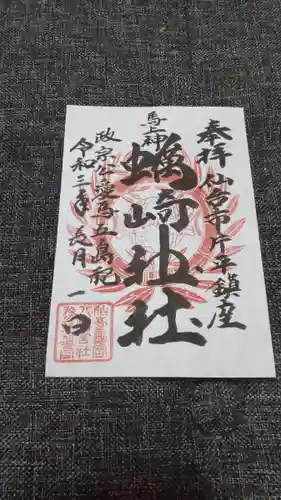 奉拝 仙台市片平鎮座
馬上神
蠣崎神社
政宗公愛馬五島祀
令和三年 長月 一日